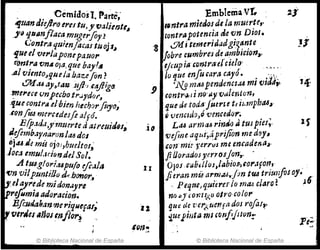 Gemidos I. Parte,
quan diestro eres tu, y valiente,
yo quan flaca muger soy?
Contra quien sacas tu ojos, 8
que el verla pone pauor
contra vna oja que baya
al viento, que la haze son?
9
merece vn pecho traydor,
que contra el bien hechor suyo,
con sus mercedes se alçó.
Espada, y muerte à atreuidos, 10
desembaynaron las dos
ojas de mis ojos, bueltos,
loca emulacion del Sol.
A tus glorias puso escala 11
vn vil puntillo de honor,
y el ayre de mi donayre
presumia adoracion.
Escudauan me riquezas, 12
y verdes años en flor,
con
Emblema VI. 23
contra miedos de la muerte,
contra potencia de vn Dios.
Mi temeridad gigante 13
sobre cumbres de ambicion,
escupia contra el cielo
lo que en su cara cayó.
No mas pendencias mi vida, 14
contra ti no ay valenton,
que de toda suerte triumphas,
ò vencido, ò vencedor.
Las armas rindo à tus pies, 15
vesme aqui, à prision me doy,
con mis yerros me encadena,
si llorados yerros son.
Ojos cabellos, labios, coraçon,
si eran mis armas, son tus triunfos oy.
Peque, quieres lo mas claro? 16
no ay contigo otro color
que de verguença dos rosas,
que pinta mi confusion.
Pe-
© Biblioteca Nacional de España
© Biblioteca Nacional de España